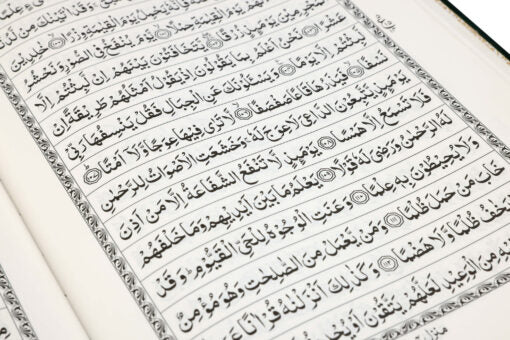 وَقَدْ اٰتَيْنٰكَ مِنْ
يَحْمِلُ يَوْمَ الْقِيٰمَةِ وِزْرًا ۝ خٰلِدِيْنَ
لَهُمْ يَوْمَ الْقِيٰمَةِ حِمْلًا ۝ يَوْمَ يُنْفَخُ فِي الصُّوْرِ وَنَحْشُرُ
يَوْمَئِذٍ زُرْقًا ۝ يَتَخَافَتُوْنَ بَيْنَهُمْ اِنْ لَّبِثْتُمْ اِلَّا
عَشْرًا ۝ نَحْنُ اَعْلَمُ بِمَا يَقُوْلُوْنَ اِذْ يَقُوْلُ اَمْثَلُهُمْ طَرِيْقَةً اِنْ
لَّبِثْتُمْ اِلَّا يَوْمًا ۝ وَيَسْـَٔلُوْنَكَ عَنِ الْجِبَالِ فَقُلْ يَنْسِفُهَا رَبِّيْ
نَسْفًا ۝ فَيَذَرُهَا قَاعًا صَفْصَفًا ۝ لَّا تَرٰى فِيْهَا عِوَجًا وَّلَآ اَمْتًا ۝
يَوْمَئِذٍ يَّتَّبِعُوْنَ الدَّاعِيَ لَا عِوَجَ لَهٗ ۚ وَخَشَعَتِ الْاَصْوَاتُ لِلرَّحْمٰنِ
فَلَا تَسْمَعُ اِلَّا هَمْسًا ۝ يَوْمَئِذٍ لَّا تَنْفَعُ الشَّفَاعَةُ اِلَّا مَنْ اَذِنَ
لَهُ الرَّحْمٰنُ وَرَضِيَ لَهٗ قَوْلًا ۝ يَعْلَمُ مَا بَيْنَ اَيْدِيْهِمْ وَمَا خَلْفَهُمْ
وَلَا يُحِيْطُوْنَ بِهٖ عِلْمًا ۝ وَعَنَتِ الْوُجُوْهُ لِلْحَيِّ الْقَيُّوْمِ ۭ وَقَدْ
خَابَ مَنْ حَمَلَ ظُلْمًا ۝ وَمَنْ يَّعْمَلْ مِنَ الصّٰلِحٰتِ وَهُوَ مُؤْمِنٌ
يَخٰفُ ظُلْمًا وَّلَا هَضْمًا ۝ وَكَذٰلِكَ اَنْزَلْنٰهُ قُرْاٰنًا
مِنَ الْوَعِيْدِ لَعَلَّهُمْ يَتَّقُوْنَ اَوْ يُحْدِثُ